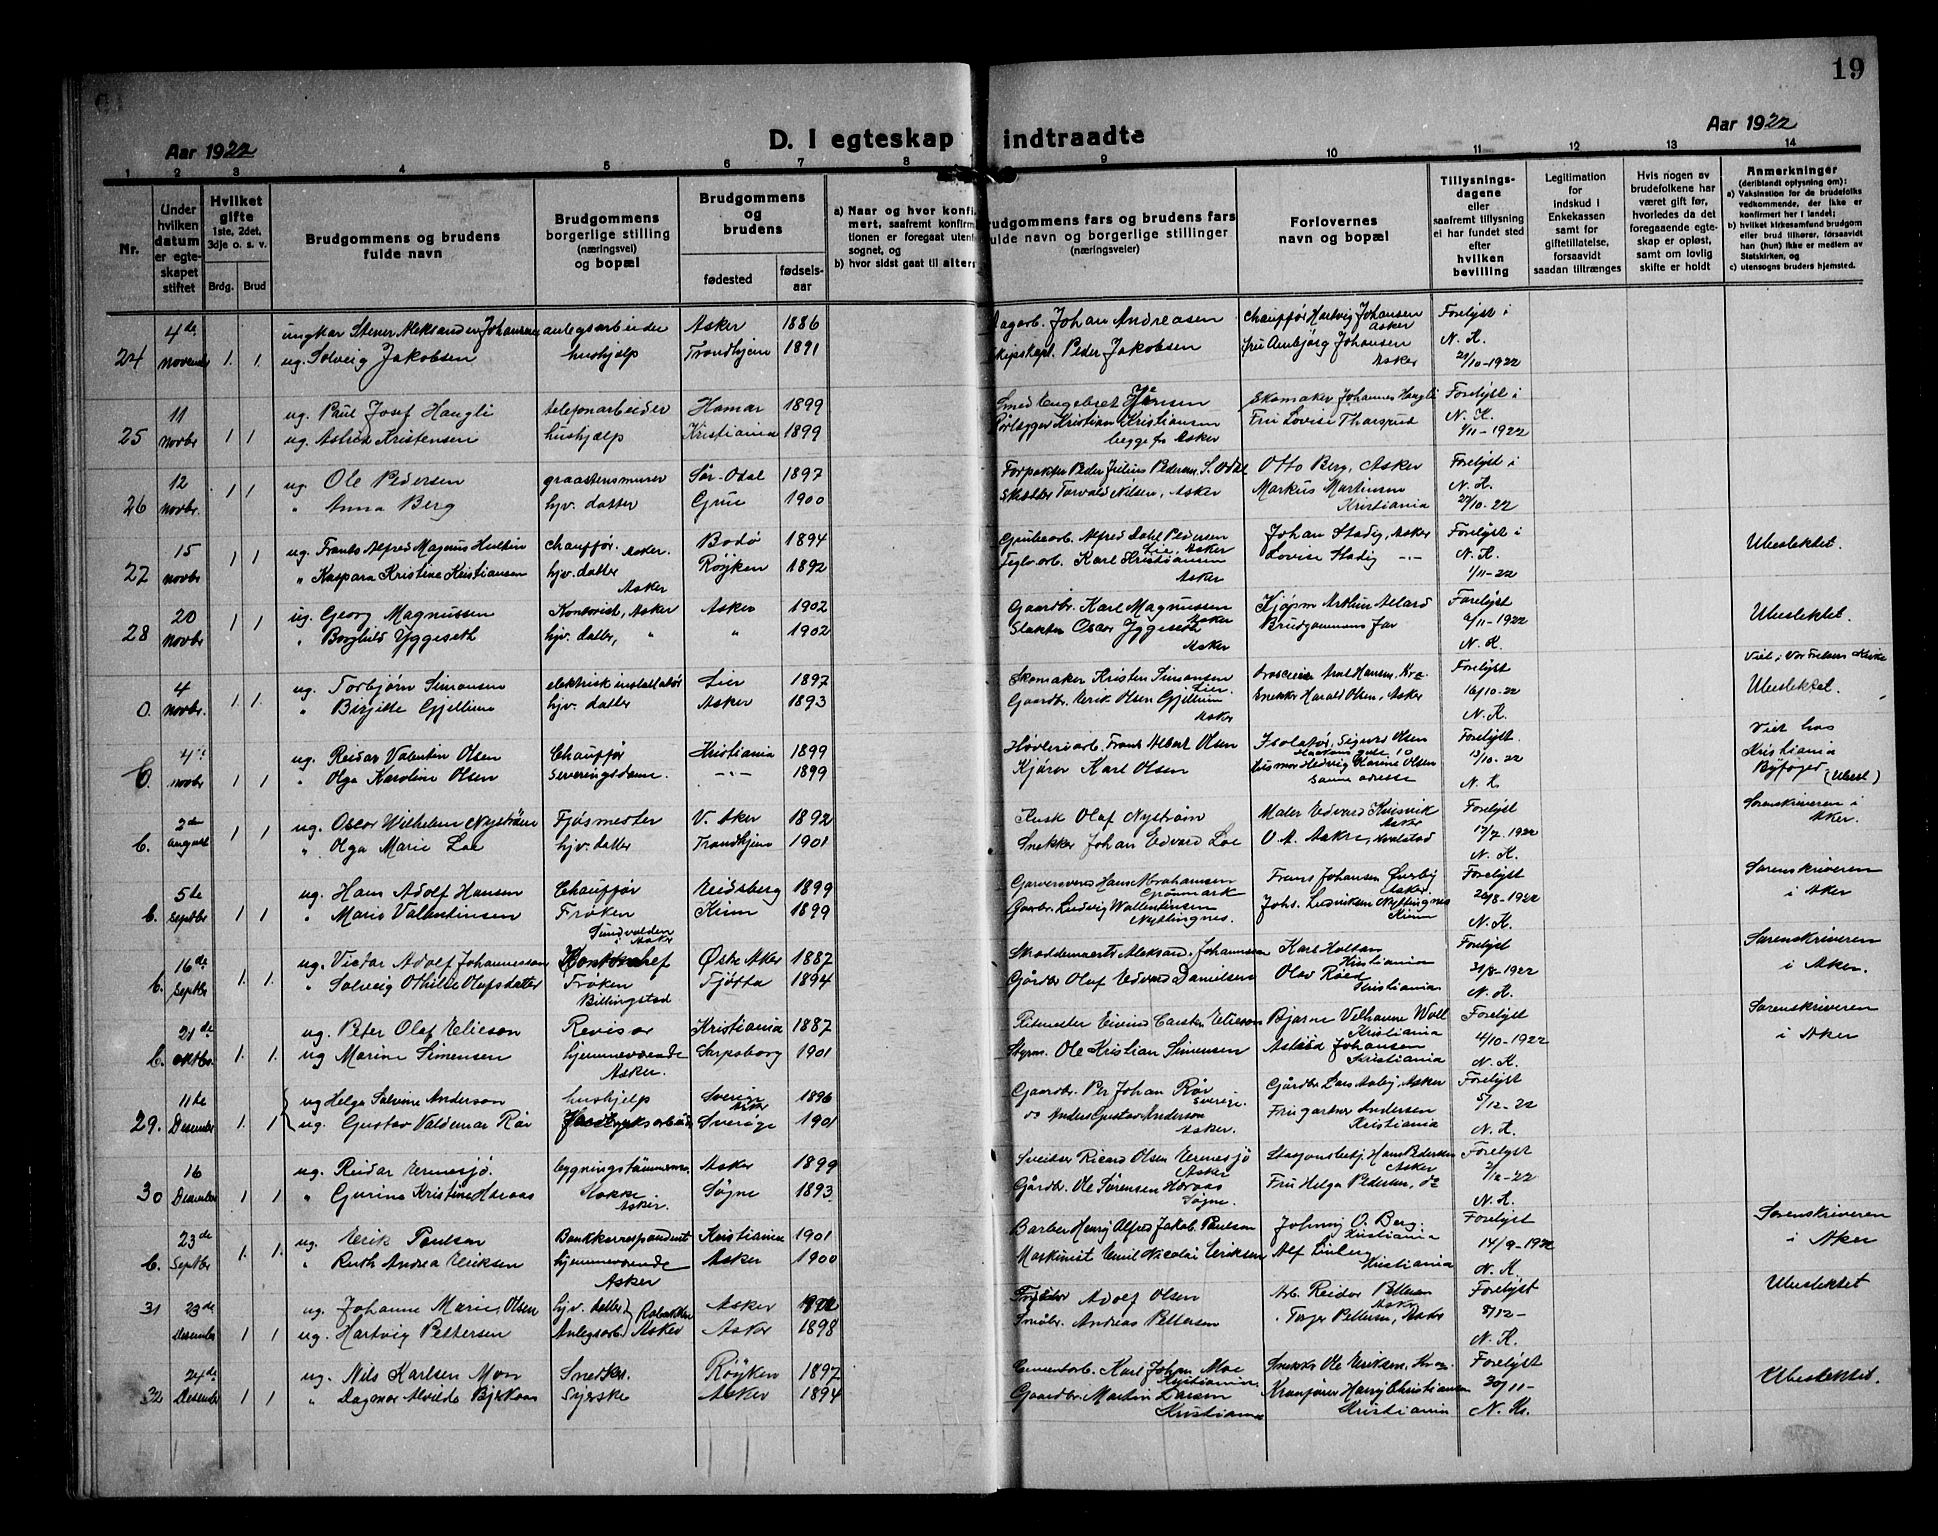 19
Aar 1922
D. I egteskap indtraadte
Aar 1922
1 2 3 4 5 6 7 8 9 10 11 12 13 14
Nr.
Under hvilken datum er egteskapet stiftet
Hvilket gifte 1ste, 2det, 3dje o. s. v.
Brdg. Brud
Brudgommens og brudens fulde navn
Brudgommens borgerlige stilling (næringsvei) og bopæl
Brudgommens og brudens
fødested
fødselsaar
a) Naar og hvor konfi
mert, saafremt konfirm
tionen er foregaat utenf
sognet, og
b) hvor sidst gaat til alters
udgommens fars og brudens fars
fulde navn og borgerlige stillinger
(næringsveier)
Forlovernes navn og bopæl
Tillysningsdagene eller saafremt tillysning ei har fundet sted efter hvilken bevilling
Legitimation for indskud i Enkekassen samt for giftetillatelse, forsaavidt saadan tiltrænges
Hvis nogen av brudefolkene har været gift før, hvorledes da det foregaaende egteskap er opløst, samt om lovlig skifte er holdt
Anmerkninger
(deriblandt oplysning om):
a) Vaksination for de brudefolks vedkommende, der ikke er konfirmert her i landet;
b) hvilket kirkesamfund brudgom eller brud tilhører, forsaavidt han (hun) ikke er medlem av Statskirken, og
c) utensogns bruders hjemsted.
4de ungkar Stener Aleksander Johansen anlegsarbeider Asker 1886 Johan Andreasen Chauffør Hartvig Johansen Asker Forelyst i
24 november 1. 1. ug. Solveig Jakobsen hushjelp Trondhjem 1891 Skipskapt. Peder Jakobsen fru Aenbjørg Johansen Asker N. K. 21/10-1922
11 ug. Paul Josef Haugli telefonarbeider Hamar 1899 Smed Engebret Jensen Skomaker Johannes Haugli Forelyst i
25 novbr 1 1 ug. Astrid Kristensen hushjælp Kristiania 1899 Rørlægger Kristian Kristiansen begge fr Asker Fru Lovise Tharsrud N. K. 1/11-1922
12 ug. Ole Pedersen graastensmurer Sør-Odal 1897 Forpakter Peder Julius Pedersen, S. Odal Otto Berg, Asker Forelyst i
26 novbr. 1 1 " Anna Berg hjv. datter Grue 1900 Torvald Nilsen, Asker Markus Martinsen Kristiania N. K. 27/10-22
15 ug. Frants Alfred Magnus Hultin chauffør. Asker. Bodø 1894 Grubearb. Alfred Dahl Pedersen Lie, Asker Johan Stadig, Asker Forelyst i Ubeslektet.
27 novbr 1 1 " Kaspara Kristine Kristiansen hjv. datter Asker Røyken 1892 Teglv.arb. Karl Kristiansen Asker Lovise Stadig -"- N. K. 1/11-22
20 ug. Georg Magnussen Kontorist, Asker Asker 1902 Gaardbr. Karl Magnussen Asker Kjøpm Arthur Forelyst Ubeslektet.
28 novbr 1 1 " Borghild Yggeseth hjv. datter, " " 1902 Slakter Oscar Yggeseth Asker Brudgommens far /11-1922 N. K.
4 ug. Torbjørn Simonsen elektrisk installatør Lier 1897 Skomaker Kristen Simonsen Lier. Arnt Hansen, Kra Forelyst Viet i Vor Frelsers Kirke
0. novbr. 1. 1. " Birgitte Gjellum hjv. datter Asker 1893 Gaardbr. Erik Olsen Gjellum Asker Snekker Harald Olsen, Asker 16/10-22 N. K. Ubeslektet.
4de ug. Reidar Valentin Olsen Chauffør Kristiania 1899 Høvleriarb. Frans Albert Olsen Isolatør, Sigurd Olsen 10 Forelyst. Viet hos Kristiania
0. novbr 1 1 " Olga Karoline Olsen Serveringsdame. -"- 1899 Kjører Karl Olsen Husmor Hedvig Marine Olsen samme adresse 13/10-22 N. K. Byfoged (Ubesl)
2den ug. Oscar Wilhelm Nystrøm Fjøsmester V. Aker 1892 Kusk Olaf Nystrøm Maler Edvard Asker Forelyst Sorenskriveren i Aker.
b. august 1 1 " Olga Marie Loe hjv. datter Trondhjem 1901 Snekker Johan Edvard Loe O. A. Aakre, Hvalstad 17/7-1922 N. K.
5te ug. Hans Adolf Hansen Chauffør Eidsberg 1899 Hans Abrahamsen Grønmark Frans Johansen Asker. Forelyst Sorenskriveren
b. septbr 1 1 " Marie Vallentinsen Frøken Sundvolden i Asker Kinn 1899 Gaarbr. Ludvig Wallentinsen Nyttingnes. Johs. Ludviksen Nyttingnes Kinn 26/8-1922 N. K. i Aker
16de ug. Vidar Adolf Johannesson Kontorchef Østre Aker 1887 Aleksand. Johannesen Karl Holtan Kristiania Forelyst Sorenskriveren
b. Septbr 1. 1. " Solveig Othilie Olufsdatter Frøken Billingstad Tjøtta 1894 Gårdbr Oluf Edvard Danielsen Olav Røed Kristiania. 31/8-1922 N. K. i Aker.
21de ug. Peter Olaf Ericson Revisor Kristiania 1887 Ritmester Eivind Carsten Ericson Bjarne Vilhelm Woll Kristiania Forelyst Sorenskriveren
b. oktbr. 1. 1. ug Marine Simensen hjemmeværende Asker. Sarpsborg 1901 Styrm. Ole Kristian Simensen Astrid Johansen Kristiania 4/10-1922 N. K. i Aker
11de ug Helga Salvine Anderson hushjelp Sverige Asker 1896 Gaardbr. Per Johan Rør Sverige. Gårdbr Lars Aaby, Asker Forelyst
29. Desember 1. 1 ug. Gustav Valdemar Rör Sverige 1901 do Anders Gustav Anderson Asker. Fru gartner Andersen Kristiania 5/12-22 N. K.
16 ug. Reidar Ermesjø bygningstømmerm. Asker 1899 Sveitser Ricard Olsen Ermesjø Asker Stasjonsbetj. Hans Pedersen Asker Forelyst
30 Desember 1 1 " Gurine Kristine Høraas Kokke Asker. Søgne 1893. Gårdbr. Ole Sørensen Høraas Søgne. Fru Helga Pedersen, do 2/12-22 N. K.
23de ug. Erik Poulson Bankkorrespondent Kristiania 1901 Barber Henry Alfred Jakob. Poulson Johnny O. Berg. Kristiania Forelyst Sorenskriveren
b. Septbr 1. 1. " Ruth Andrea Eriksen hjemmeværende Asker Asker 1900 Maskinist Emil Nicolai Eriksen Alf Linberg Kristiania 14/9-1922 N. K. i Aker
31 23de ug. Johanne Marie Olsen hjv. datter Asker Adolf Olsen Arb. Reidar Pettersen Asker Forelyst Ubeslektet
Desember 1 1 ug. Hartvig Pettersen Anlegsarb. Asker Asker 1898 Småbr. Andreas Pettersen Torger Pettersen, Asker 8/12- N. K.
24de ug. Nils Karlsen Mon Snedker. Røyken 1897 Cementarb. Karl Johan Moe Kristiania Snekker Ole Eriksen, Kra. Forelyst Ubeslektet.
32 Desember 1 1 " Dagmar Alvilde Bjerkaas Syerske Asker 1894 Gaardbr Martin Larsen Kristiania Kranfører Harry Christiansen Kristiania 30/11- N. K.